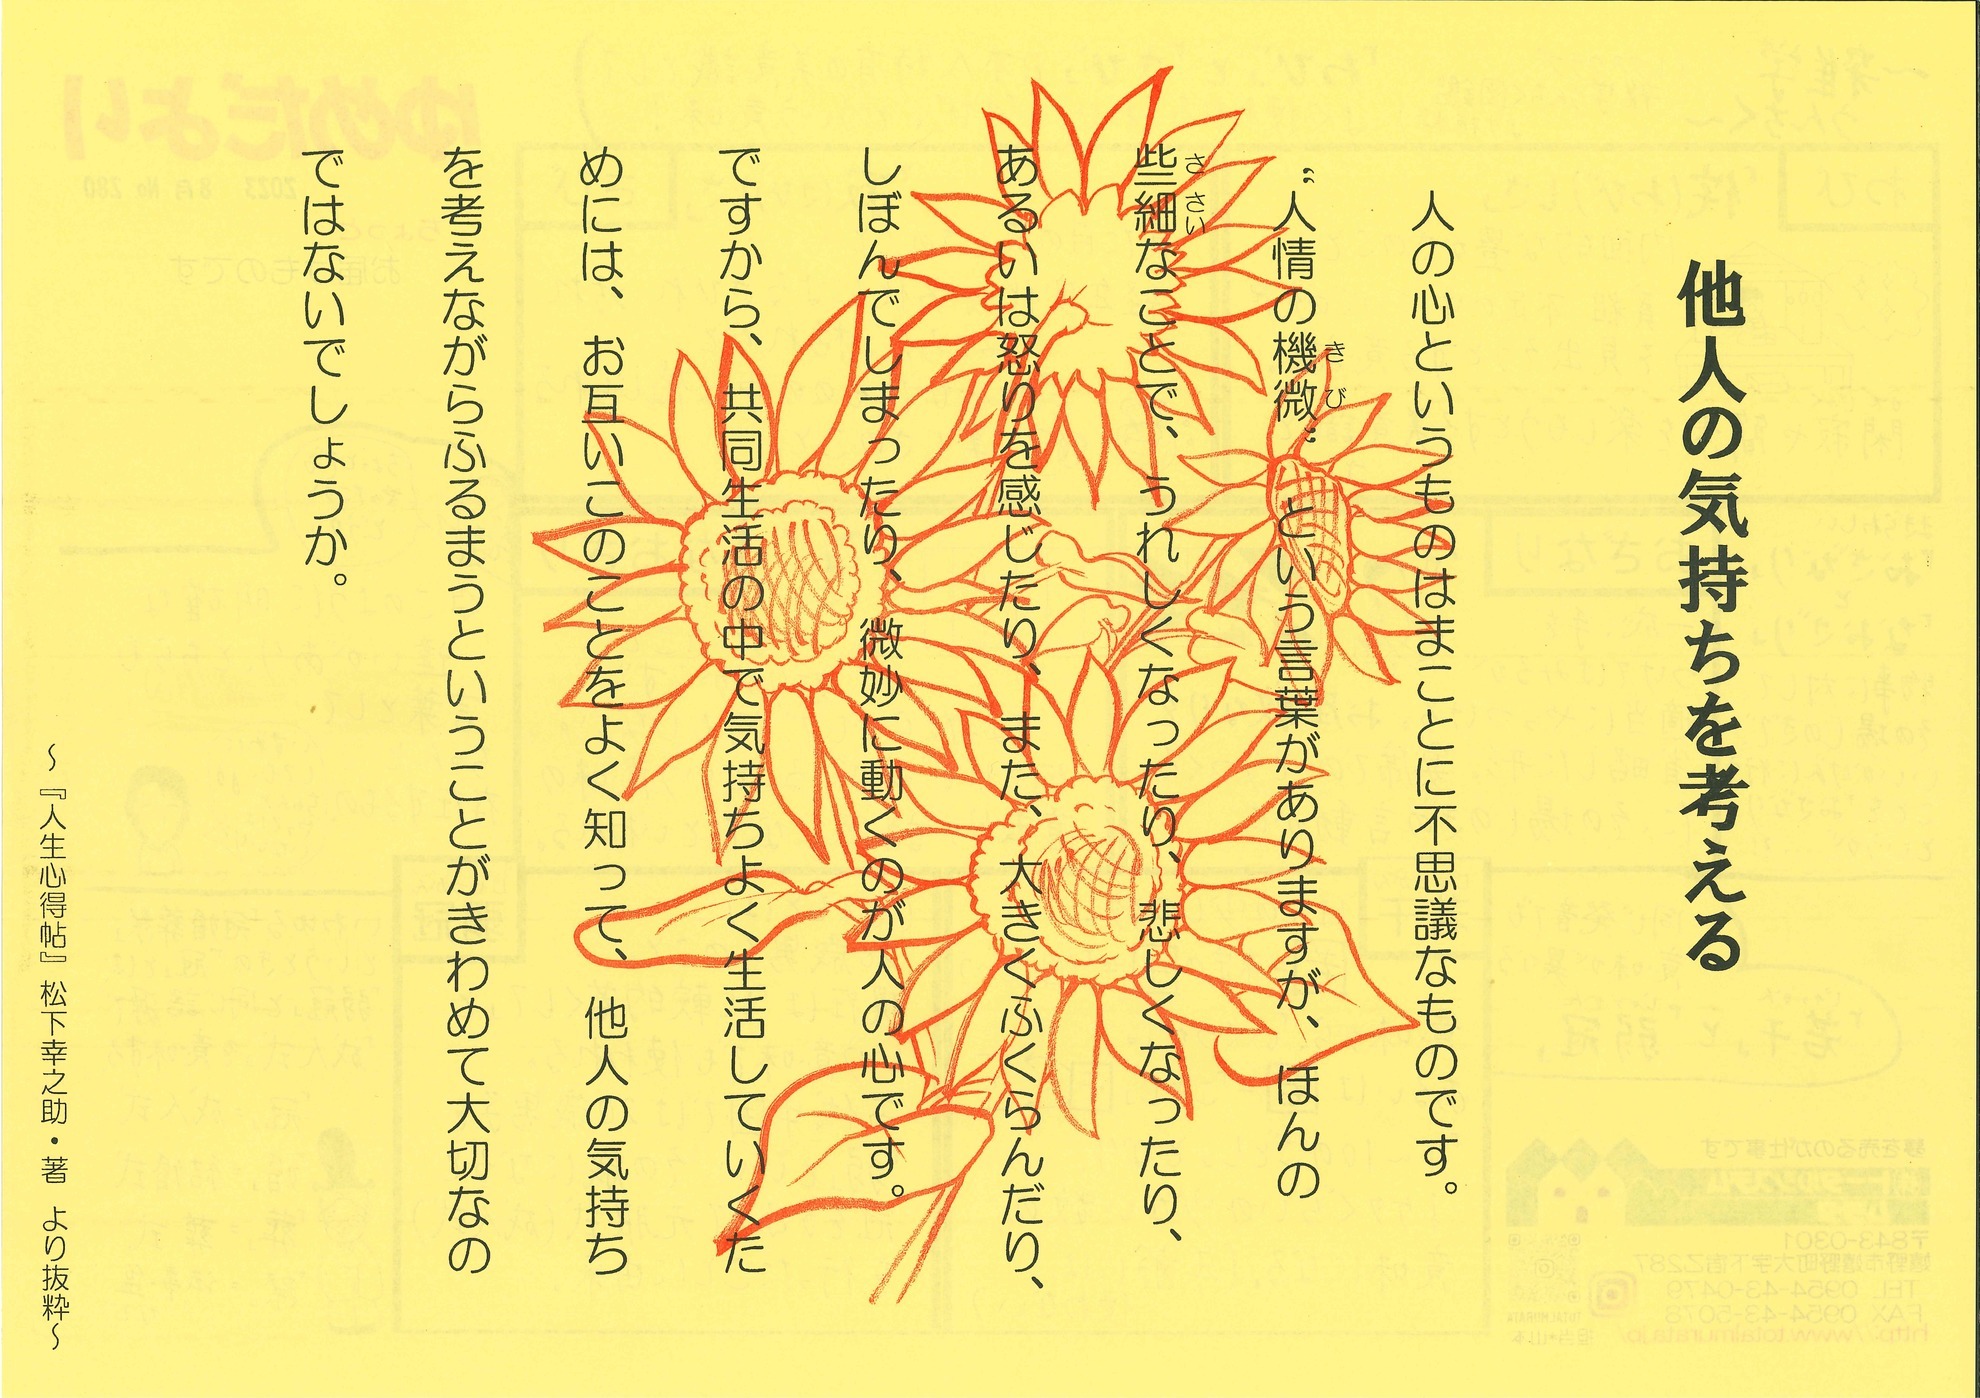 他人の気持ちを考える
人の心というものはまことに不思議なものです。
〝人情の機微〟という言葉がありますが、ほんの
些細なことで、うれしくなったり、悲しくなったり、
あるいは怒りを感じたり、また、大きくふくらんだり、
しぼんでしまったり、微妙に動くのが人の心です。
ですから、共同生活の中で気持ちよく生活していくた
めには、お互いこのことをよく知って、他人の気持ち
を考えながらふるまうということがきわめて大切なの
ではないでしょうか。
～『人生心得帖』松下幸之助・著 より抜粋～